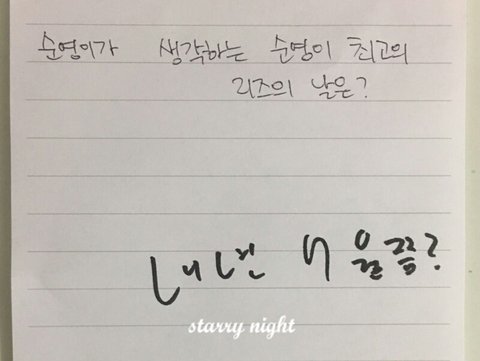 순영이가 생각하는 순영이 최고의
리즈의 날은?
내년 4월쯤?
starry night